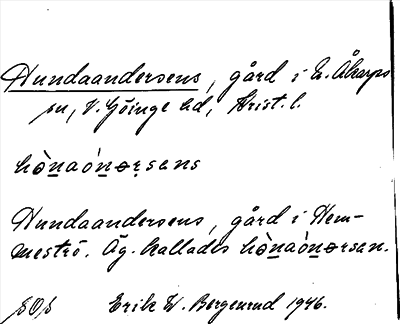 Hundaandersens, gård i N. Åkarps
sn, V. Göinge hd, Krist. l.
hònaónərsans
Hundaandersens, gård i Hem-
meströ. Äg. kallades hònaónərsan.
Erik W. Bergenrud 1946.